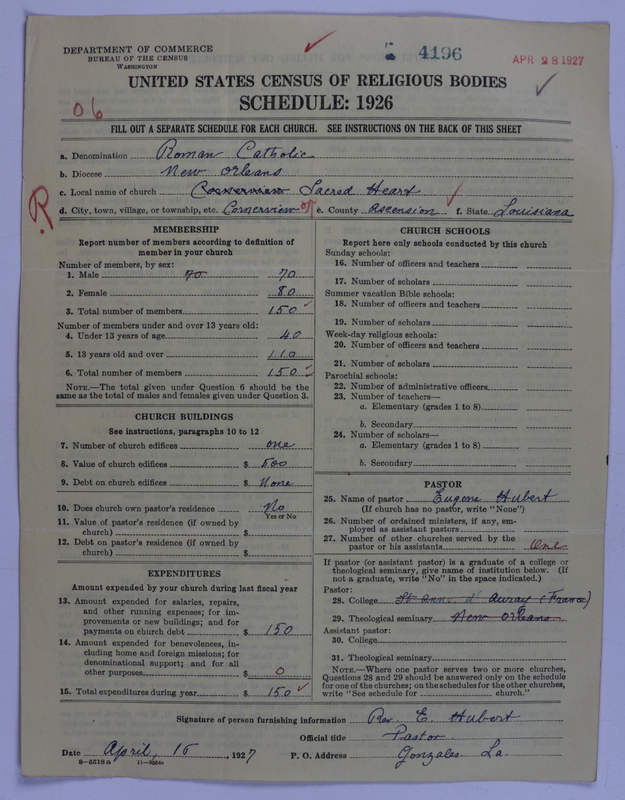 DEPARTMENT OF COMMERCE
BUREAU OF THE CENSUS
WASHINGTON
4196
APR 28 1927
UNITED STATES CENSUS OF RELIGIOUS BODIES
SCHEDULE: 1926
06
FILL OUT A SEPARATE SCHEDULE FOR EACH CHURCH. SEE INSTRUCTIONS ON THE BACK OF THIS SHEET
a. Denomination Roman Catholic
b. Diocese New Orleans
c. Local name of church Cornerview Sacred Heart
d. City, town, village, or township, etc. Cornerview e. County Ascension f. State Louisiana
R
MEMBERSHIP
Report number of members according to definition of
member in your church
Number of members, by sex:
1. Male 70 70
2. Female 80
3. Total number of members 150
Number of members under and over 13 years old:
4. Under 13 years of age 40
5. 13 years old and over 110
6. Total number of members 150
NOTE.—The total given under Question 6 should be the
same as the total of males and females given under Question 3.
CHURCH BUILDINGS
See instructions, paragraphs 10 to 12
7. Number of church edifices one
8. Value of church edifices $ 500
9. Debt on church edifices $ None
10. Does church own pastor's residence No
Yes or No
11. Value of pastor's residence (if owned by
church) $
12. Debt on pastor's residence (if owned by
church) $
EXPENDITURES
Amount expended by your church during last fiscal year
13. Amount expended for salaries, repairs,
and other running expenses; for im-
provements or new buildings; and for
payments on church debt $ 150
14. Amount expended for benevolences, in-
cluding home and foreign missions; for
denominational support; and for all
other purposes $ 0
15. Total expenditures during year $ 150
CHURCH SCHOOLS
Report here only schools conducted by this church
Sunday schools:
16. Number of officers and teachers
17. Number of scholars
Summer vacation Bible schools:
18. Number of officers and teachers
19. Number of scholars
Week-day religious schools:
20. Number of officers and teachers
21. Number of scholars
Parochial schools:
22. Number of administrative officers
23. Number of teachers—
a. Elementary (grades 1 to 8)
b. Secondary
24. Number of scholars—
a. Elementary (grades 1 to 8)
b. Secondary
PASTOR
25. Name of pastor Eugene Hubert
(If church has no pastor, write "None")
26. Number of ordained ministers, if any, em-
ployed as assistant pastors
27. Number of other churches served by the
pastor or his assistants One
If pastor (or assistant pastor) is a graduate of a college or
theological seminary, give name of institution below. (If
not a graduate, write "No" in the space indicated.)
Pastor:
28. College St Anne d'Auray (France)
29. Theological seminary New Orleans
Assistant pastor:
30. College
31. Theological seminary
NOTE.—Where one pastor serves two or more churches,
Questions 28 and 29 should be answered only on the schedule
for one of the churches; on the schedules for the other churches,
write "See schedule for church."
Signature of person furnishing information Rev. E. Hubert
Official title Pastor
Date April, 15, 1927 P. O. Address Gonzales La.
8-5518a